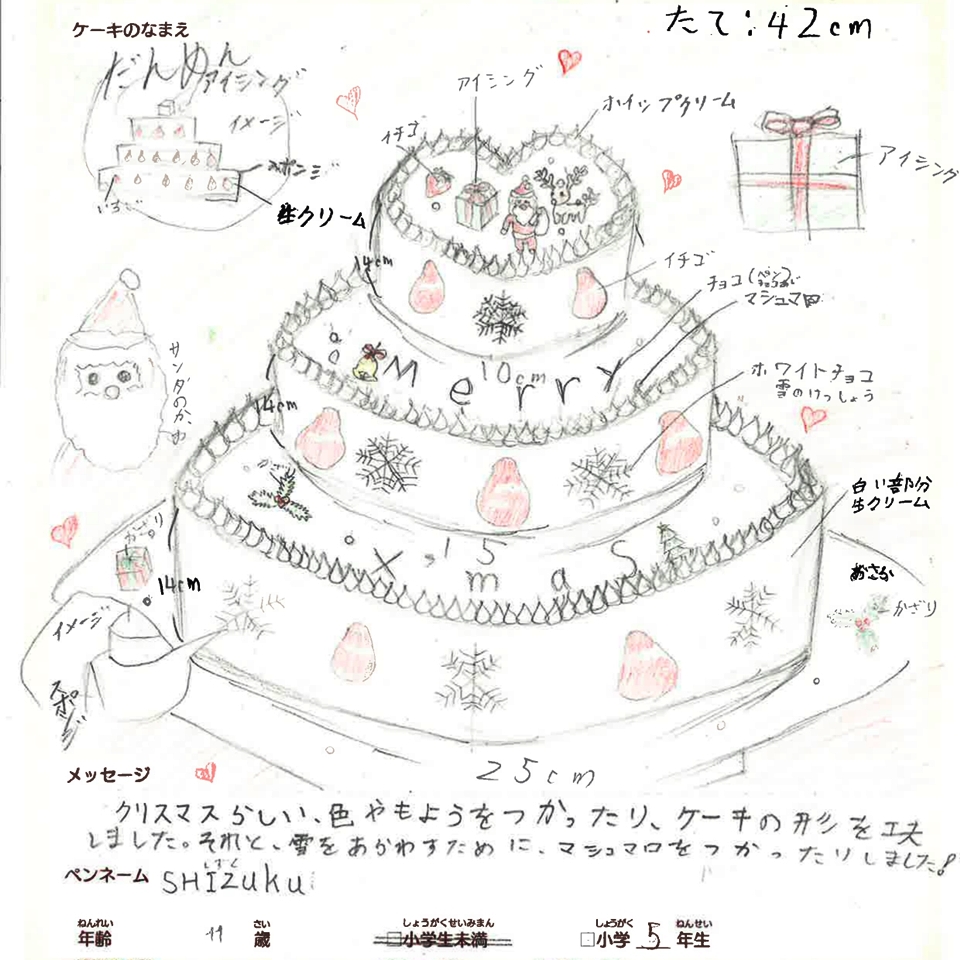 ケーキのなまえ
たて:42cm
だんめん
アイシング
イメージ
スポンジ
いちご
生クリーム
アイシング
イチゴ
ホイップクリーム
アイシング
14cm
イチゴ
チョコ(ペン)
マシュマロ
10cm
Merry
ホワイトチョコ
雪のけっしょう
サンタのかお
14cm
かざり
白い部分
生クリーム
15
X'mas
14cm
かざり
イメージ
スポンジ
25cm
メッセージ
クリスマスらしい、色やもようをつかったり、ケーキの形を工夫
しました。それと、雪をあらわすために、マシュマロをつかったりしました!
ペンネーム SHIZuku
しずく
ねんれい さい しょうがくせいみまん しょうがく ねんせい
年齢 11 歳 □小学生未満 □小学 5 年生